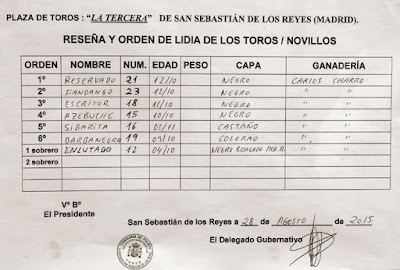 PLAZA DE TOROS : “LA TERCERA” DE SAN SEBASTIÁN DE LOS REYES (MADRID).
RESEÑA Y ORDEN DE LIDIA DE LOS TOROS / NOVILLOS
ORDEN NOMBRE NUM. EDAD PESO CAPA GANADERÍA
1º RESERVADO 21 12/10 NEGRO CARLOS CHARRO
2º FANDANGO 23 12/10 NEGRO " "
3º ESCRITOR 18 11/10 NEGRO " "
4º AZEBUCHE 15 10/10 NEGRO " "
5º SIBARITA 16 01/11 CASTAÑO " "
6º BARBANEGRA 19 09/10 COLORAO " "
1 sobrero ENLUTADO 12 04/10 NEGRO BRAGADO " "
2 sobrero
Vº Bº
El Presidente
San Sebastián de los Reyes a 28 de AGOSTO de 2015
El Delegado Gubernativo